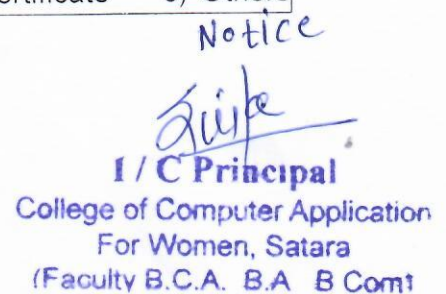 Notice
I / C Principal
College of Computer Application
For Women, Satara
(Faculty B.C.A. B.A B Com)